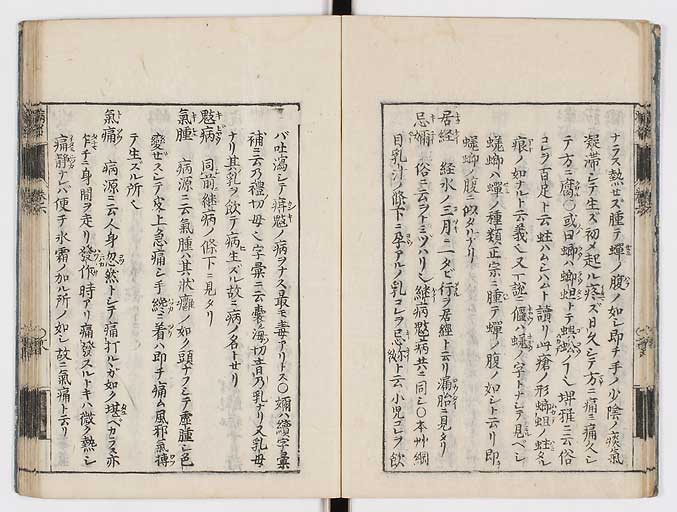 ナラス熱セズ腫テ蟬ノ腹ノ如シ即チ手ノ少陰ノ痰氣
凝滯シテ生ズ初メ起ル痰ズ日久シテ方ニ痛ニ痛久シ
テ方ニ腐〇或曰蝍ハ蝍蛆トテ蜈蚣ノ丨シ堺雅ニ云俗
コレヲ百足ト云蛀ハムシハムト讀リ此瘡ノ形蝍蛆ノ蛀タル
痕ノ如ナルト云義シ又丁説ニ
蟬ノ種類正宗ニ腫テ蟬ノ腹ノ如シト云リ即
ノ腹ニ似タルナリ
居經 經水ノ三月ニ一タビ行ヲ居經ト云リ漏胎ニ見タリ
忌嬭 俗ニ云ヲトミツハリシ繼病鬾病共ニ同シ〇本艸綱
目乳汁ノ條下ニ孕アルノ乳コレヲ忌嬭ト云小児コレヲ飮
バ吐瀉シテ癖鬾ノ病ヲナス最モ毒アリトス〇嬭ハ續字彙
補ニ云乃禮切母也字彙ニ云囊海切音乃乳ナリ又乳母
ナリ其乳ヲ飮テ病生ズル故ニ病ノ名トセリ
鬾病 同前繼病ノ條下ニ見タリ
氣腫 病源ニ云氣腫ハ其狀癰ノ如ク頭ナフシテ虛腫シ色
變セズシテ皮上急痛シ手纔ニ着ハ即チ痛ム風邪氣搏
テ生スル所也
氣痛 病源ニ云人身忽然トシテ痛打ルガ如ク堪ベカラズ亦
乍チニ身間ヲ走リ發作時アリ痛發スルトキハ微ク熱シ
痛靜ナレバ便チ氷霜ノ加ル所ノ如シ故ニ氣痛ト云リ